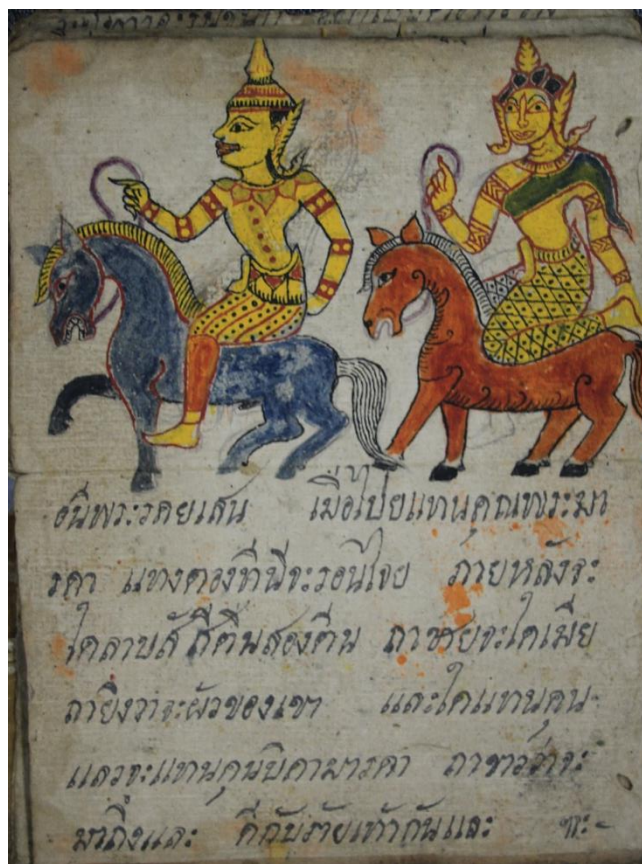 อนึพระรดยเสน เมื่อไปยแทนคุณพระมา
รดา แทงตองที่นี่จะรอนใจย ภายหลังจะ
ไดลาบสั สี่ตีนสองตีน ถาชายจะใดเมีย
ถายิงวาจะผัวของเขา และใดแทนคุน
แลวจะแทนคุนบิดามารดา ถาขาวว่าจะ
มาถึงและ ดีกับร้ายเท้ากันและ ฯะ